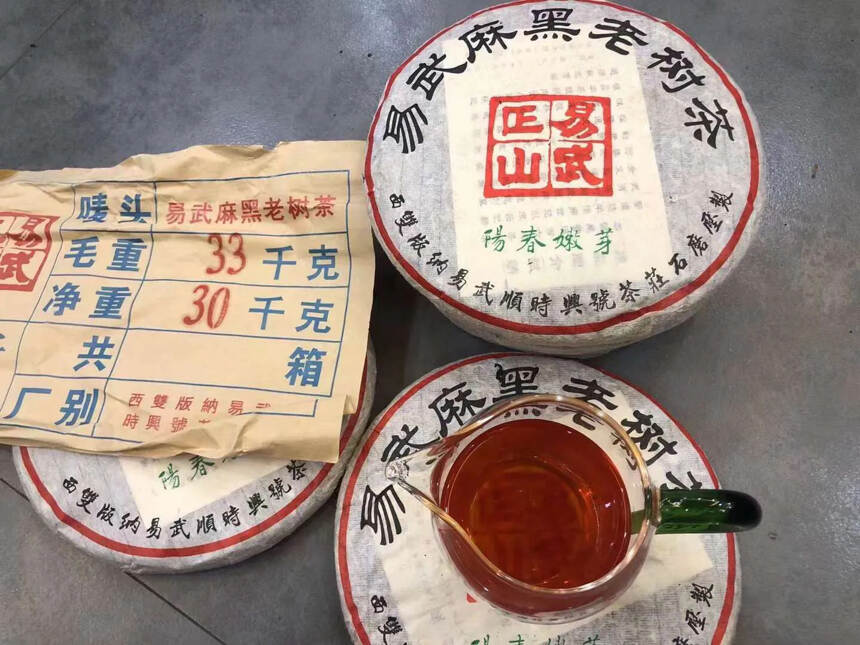 易武麻黑老树茶
易武
正山
陽春嫩芽
西雙版纳易武順時興號茶莊石磨壓製
唛头 易武麻黑老树茶
毛重 33 千克
净重 30 千克
共 箱
厂别 西雙版納易武
時興號
易武
陽春
西雙版纳易武順時興號茶
易武麻黑老树茶
陽春嫩芽
西雙版
石磨壓製